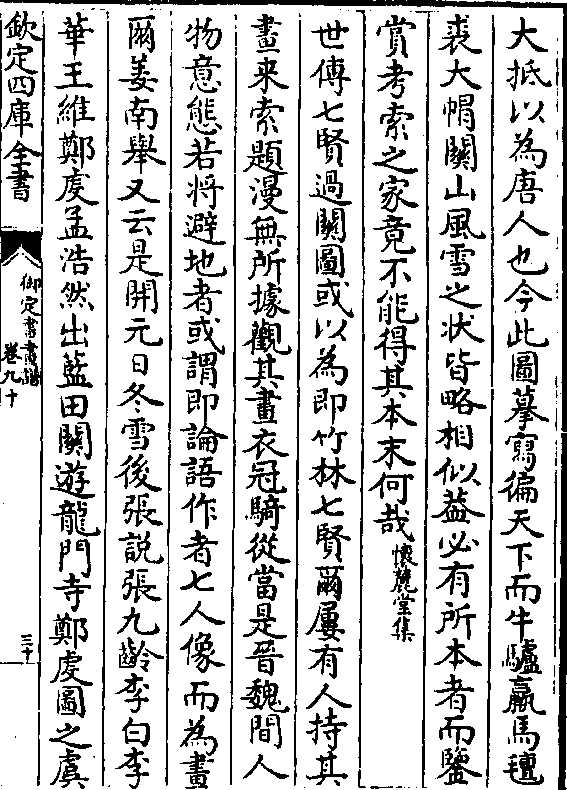 大抵以為唐人也今此圖摹寫徧天下而牛驢羸馬氊
裘大帽關山風雪之状皆略相似葢必有所本者而鑒
賞考索之家竟不能得其本末何哉懷麓堂集
世傳七賢過關圖或以為即竹林七賢爾屢有人持其
畫來索題漫無所據觀其畫衣冠騎從當是晉魏間人
物意態若將避地者或謂即論語作者七人像而為畫
爾姜南舉又云是開元日冬雪後張説張九齡李白李
華王維鄭虔孟浩然出藍田關遊龍門寺鄭虔圖之虞
欽定四庫全書
御定書畫譜
卷九十
三十